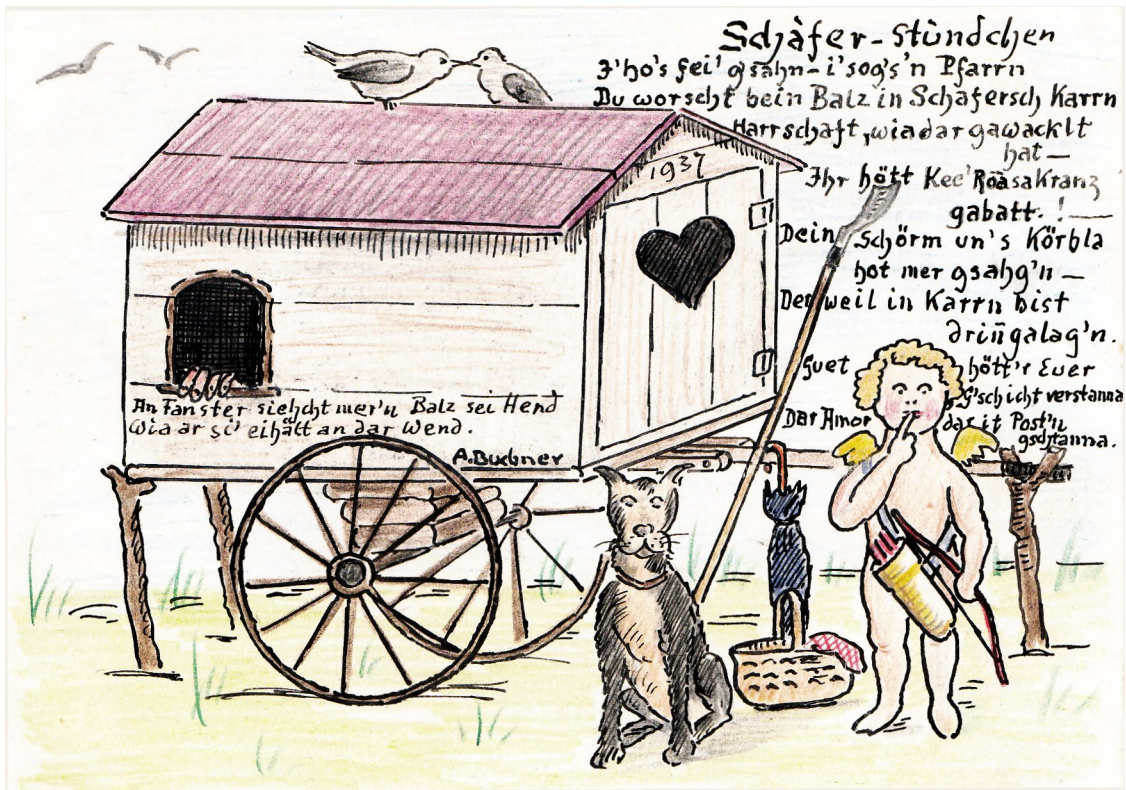 Schäfer-Stündchen
I'ho's fei' gsahn - i'sog's'n Pfarrn
Du worscht bein Balz in Schäfersch Karrn
Harrschaft, wia dar gawacklt
hat —
Ihr hött Kee' Roasakranz
gabatt. ! —
Dein Schörm un's Körbla
hot mer gsahg'n —
Derweil in Karrn bist
dringalag'n.
Guet hött'r Euer
G'schicht verstanna
Dar Amor dar it Post'n
gschtanna.
1937
An Fanster siehcht mer'n Balz sei Hend
Wia ar si' eihätt an dar Wend.
A. Buebner